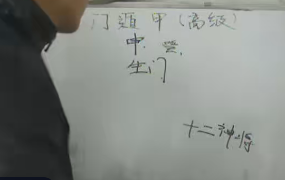 门遁甲(高级)
中.
生门
十二神将